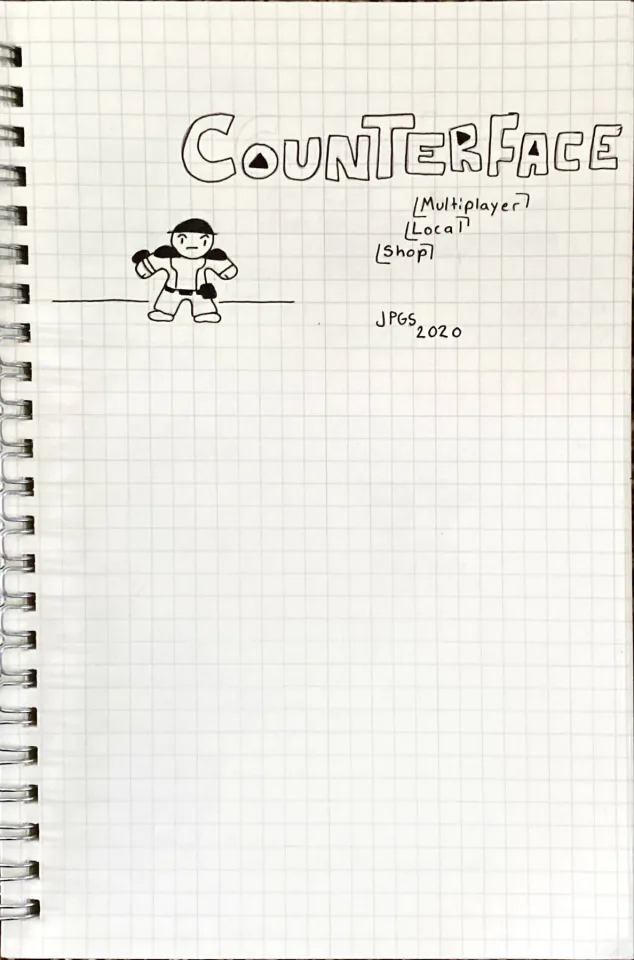 COUNTERFACE
[Multiplayer]
[Local]
[Shop]
JPGS
2020